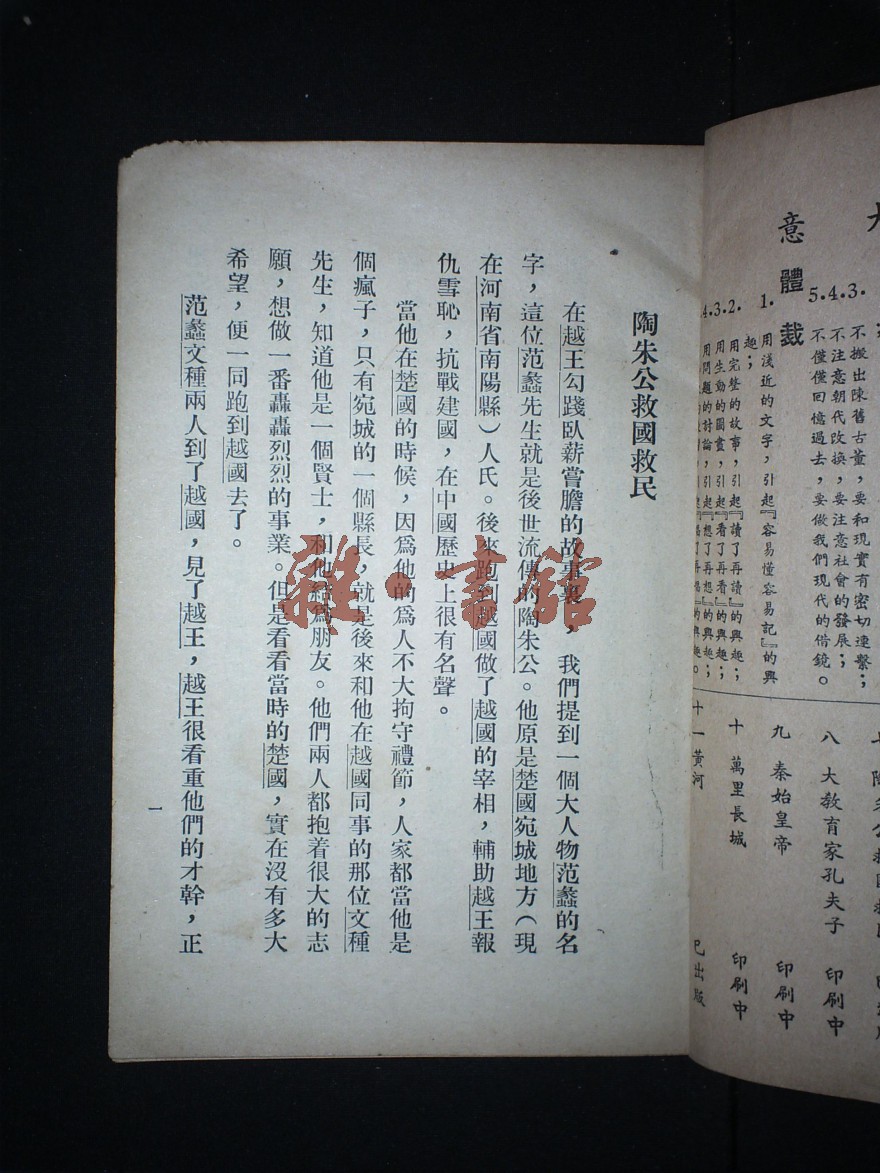 意體裁
5.4.3.
不搬出陳舊古董，要和現實有密切連繫；
不注意朝代改換，要注意社會的發展；
不僅僅回憶過去，要做我們現代的借鏡。
1.
用淺近的文字，引起『容易懂容易記』的興
趣；
4.3.2.
用完整的故事，引起『讀了再讀』的興趣；
用生動的圖畫，引起『看了再看』的興趣；
用問題的討論，引起『想了再想』的興趣；
八 大教育家孔夫子 印刷中
九 秦始皇帝 印刷中
十 萬里長城 印刷中
十一 黃河 已出版
陶朱公救國救民
在越王勾踐臥薪嘗膽的故事裏，我們提到一個大人物范蠡的名
字，這位范蠡先生就是後世流傳的陶朱公。他原是楚國宛城地方（現
在河南省南陽縣）人氏。後來跑到越國做了越國的宰相，輔助越王報
仇雪恥，抗戰建國，在中國歷史上很有名聲。
當他在楚國的時候，因爲他的爲人不大拘守禮節，人家都當他是
個瘋子，只有宛城的一個縣長，就是後來和他在越國同事的那位文種
先生，知道他是一個賢士，和他結爲朋友。他們兩人都抱着很大的志
願，想做一番轟轟烈烈的事業。但是看看當時的楚國，實在沒有多大
希望，便一同跑到越國去了。
范蠡文種兩人到了越國，見了越王，越王很看重他們的才幹，正
一
雜·書館